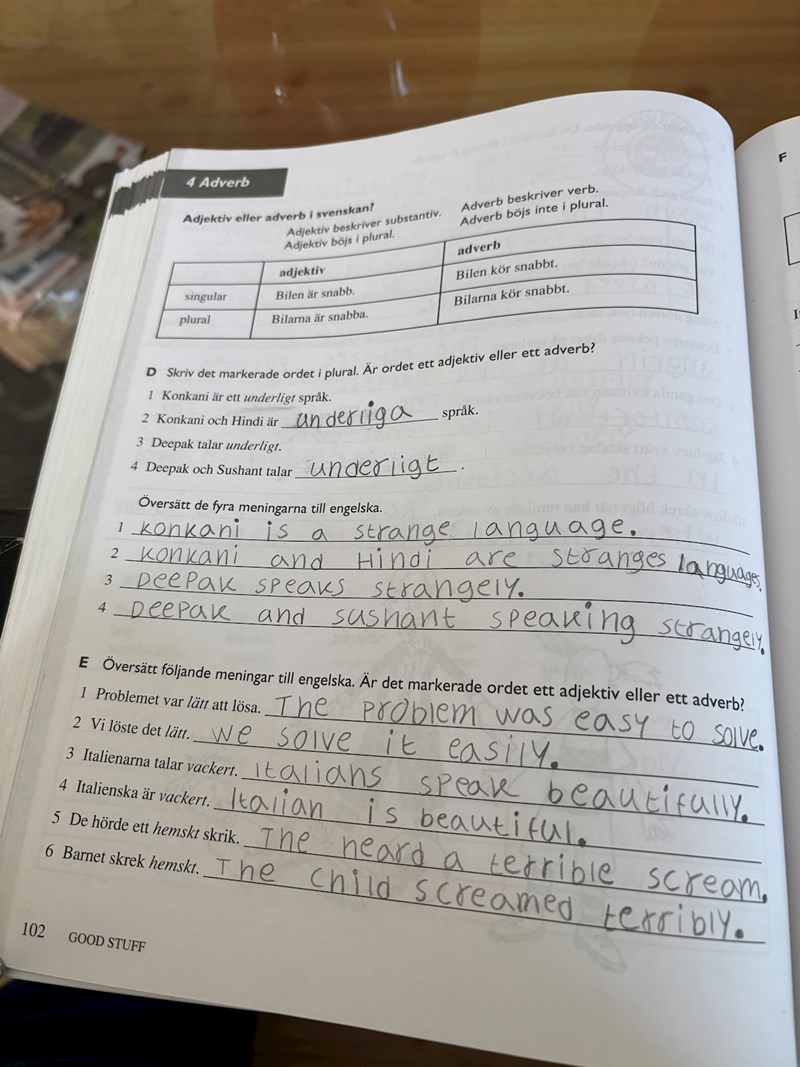 4 Adverb
Adjektiv eller adverb i svenskan?
Adjektiv beskriver substantiv. Adverb beskriver verb.
Adjektiv böjs i plural. Adverb böjs inte i plural.
adjektiv adverb
singular Bilen är snabb. Bilen kör snabbt.
plural Bilarna är snabba. Bilarna kör snabbt.
D Skriv det markerade ordet i plural. Är ordet ett adjektiv eller ett adverb?
1 Konkani är ett underligt språk.
2 Konkani och Hindi är underliga språk.
3 Deepak talar underligt.
4 Deepak och Sushant talar underligt.
Översätt de fyra meningarna till engelska.
1 Konkani is a strange language.
2 Konkani and Hindi are stranges languages.
3 Deepak speaks strangely.
4 Deepak and sushant speaking strangely.
E Översätt följande meningar till engelska. Är det markerade ordet ett adjektiv eller ett adverb?
1 Problemet var lätt att lösa. The problem was easy to solve.
2 Vi löste det lätt. We solve it easily.
3 Italienarna talar vackert. Italians speak beautifully.
4 Italienska är vackert. Italian is beautiful.
5 De hörde ett hemskt skrik. The heard a terrible scream.
6 Barnet skrek hemskt. The child screamed terribly.
102 GOOD STUFF
F